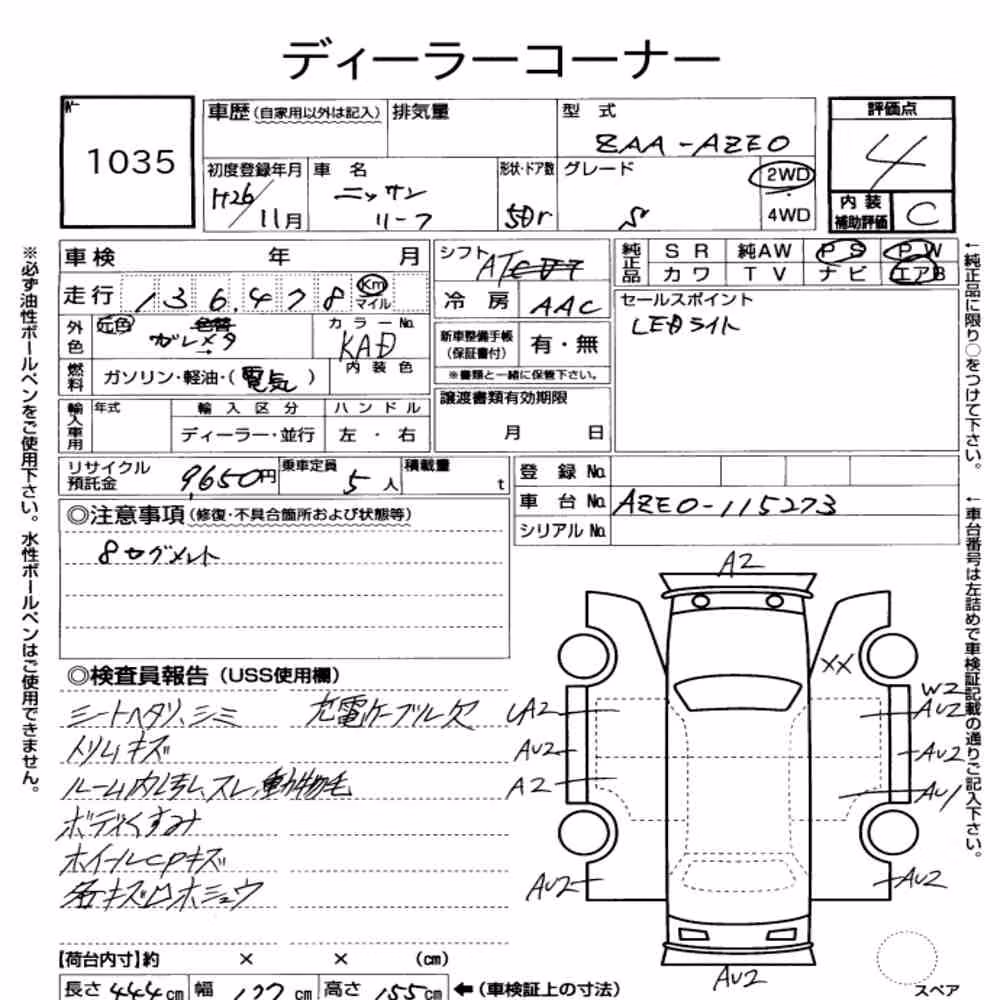 ディーラーコーナー
1035
車歴 (自家用以外は記入) 排気量 型 式
ZAA-AZE0
初度登録年月 車 名 形状・ドア数 グレード 2WD
H26/11月 ニッサン リーフ 5Dr S 4WD
評価点
4
内装 補助評価 C
車検 年 月
走行 136,478 Km マイル
外色 元色 色替 カラーNo.
ガンメタ KAD
内装色
燃料 ガソリン・軽油・(電気)
輸入車用 年式 輸入区分 ハンドル
ディーラー・並行 左・右
シフト AT
冷房 AAC
新車整備手帳 (保証書付) 有・無
※書類と一緒に保管下さい。
譲渡書類有効期限
月 日
純正品 SR 純AW PS PW
カワ TV ナビ エアB
セールスポイント
LEDライト
リサイクル預託金 9,650円 乗車定員 5人 積載量 t
登録No.
車台No. AZE0-115273
シリアルNo.
◎注意事項 (修復・不具合箇所および状態等)
8セグメント
◎検査員報告 (USS使用欄)
シートヘタリ、シミ 充電ケーブル欠
トリムキズ
ルーム内汚れ、スレ、動物毛
ボディくすみ
ホイールCPキズ
各キズ凹ホシュウ
A2
XX
W2
AU2
AU2
AU1
AU2
UA2
AU2
A2
AU2
AU2
スペア
【荷台内寸】約 × × (cm)
長さ 444cm 幅 177cm 高さ 155cm ←(車検証上の寸法)
※必ず油性ボールペンをご使用下さい。水性ボールペンはご使用できません。
←純正品に限り○をつけて下さい。
←車台番号は左詰めで車検証記載の通りご記入下さい。